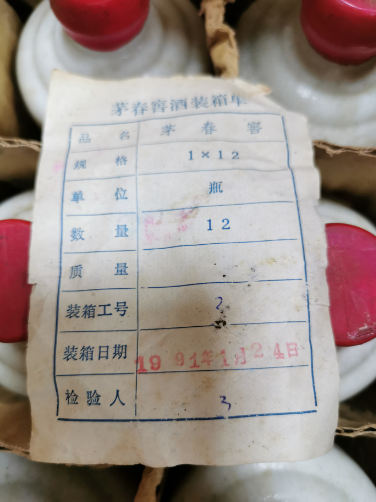 茅春窖酒装箱单
品名 茅春窖
规格 1×12
单位 瓶
数量 12
质量
装箱工号 2
装箱日期 1991年1月24日
检验人 3